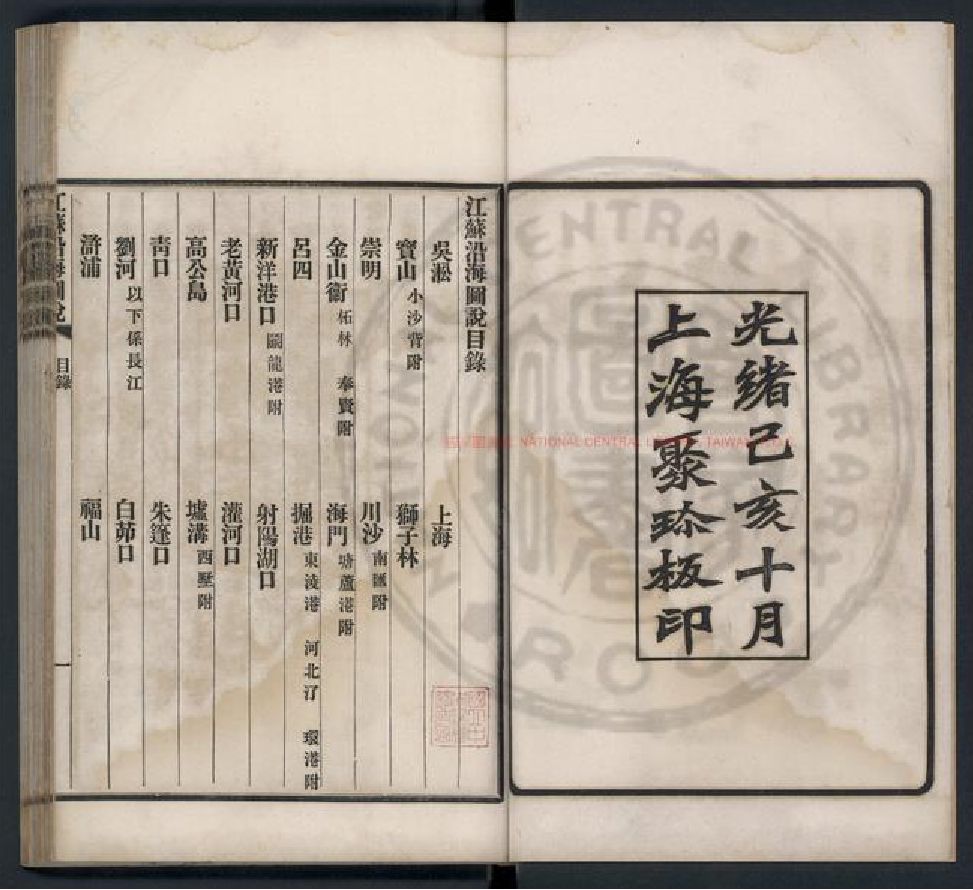 光緒己亥十月
上海聚珍板印
江蘇沿海圖說目錄
吳淞 上海
寶山 小沙背附 獅子林
崇明 川沙 南匯附
金山衞 柘林 奉賢附 海門 塘蘆港附
呂四 掘港 東淩港 河北汀 環港附
新洋港口 鬬龍港附 射陽湖口
老黃河口 灌河口
高公島 墟溝 西墅附
靑口 朱蓬口
劉河 以下係長江 白茆口
滸浦 福山
江蘇沿海圖說 目錄 一
NATIONAL CENTRAL LIBRARY, TAIWAN